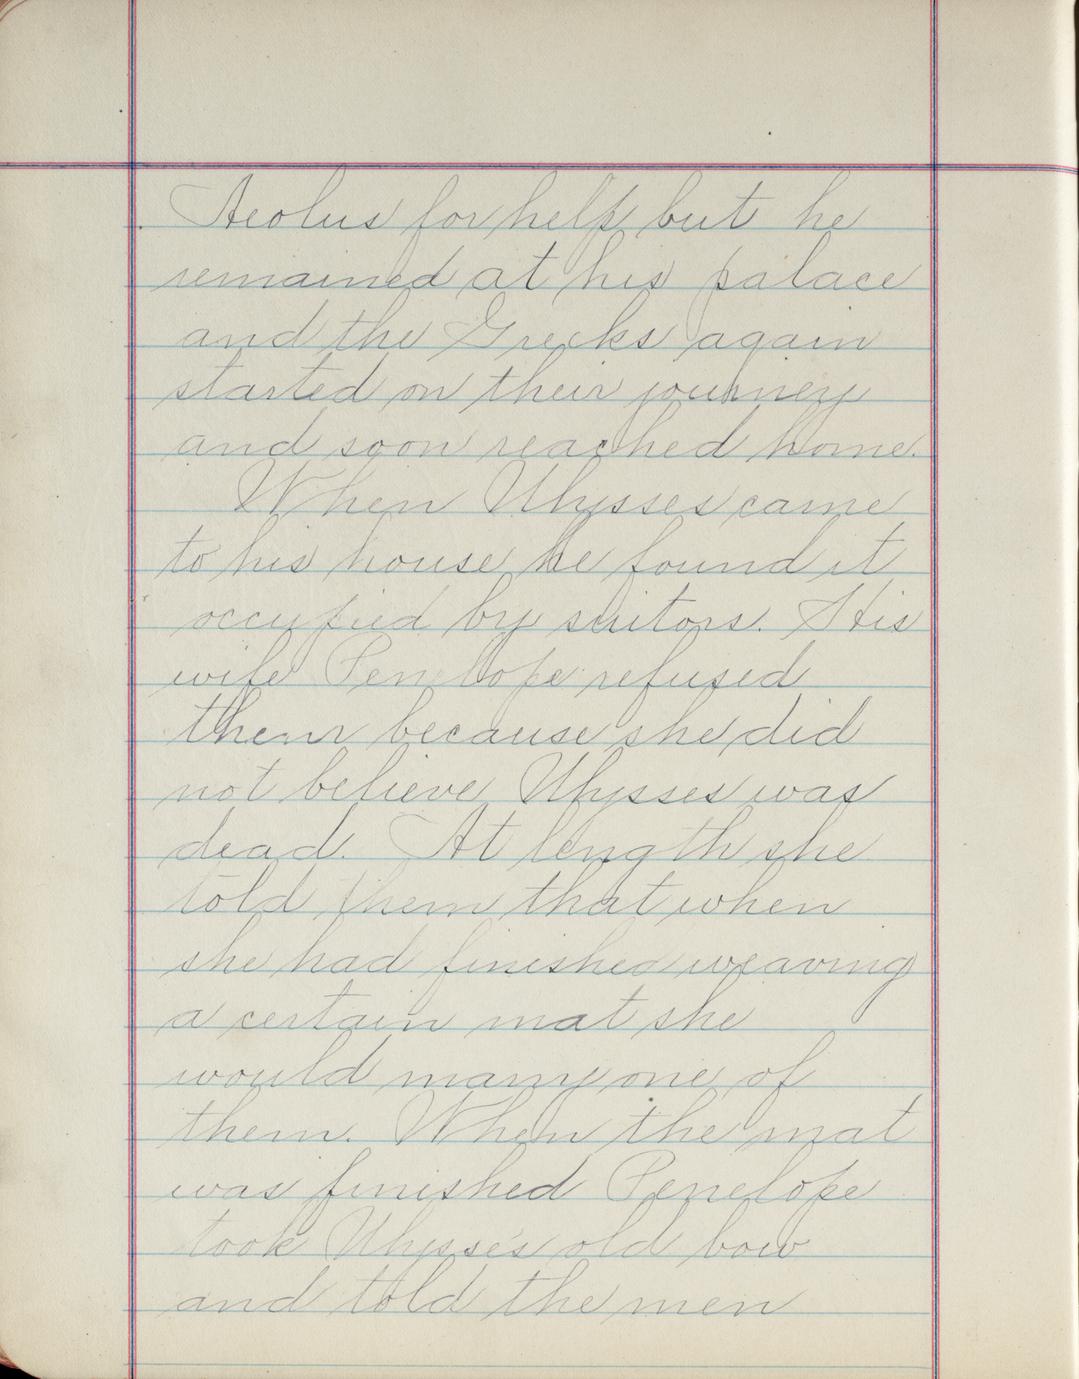 Aeolus for help but he
remained at his palace
and the Greeks again
started on their journey
and soon reached home.
When Ulysses came
to his house he found it
occupied by suitors. His
wife Penelope refused
them because she did
not believe Ulysses was
dead. At length she
told them that when
she had finished weaving
a certain mat she
would marry one of
them. When the mat
was finished Penelope
took Ulysses old bow
and told the men